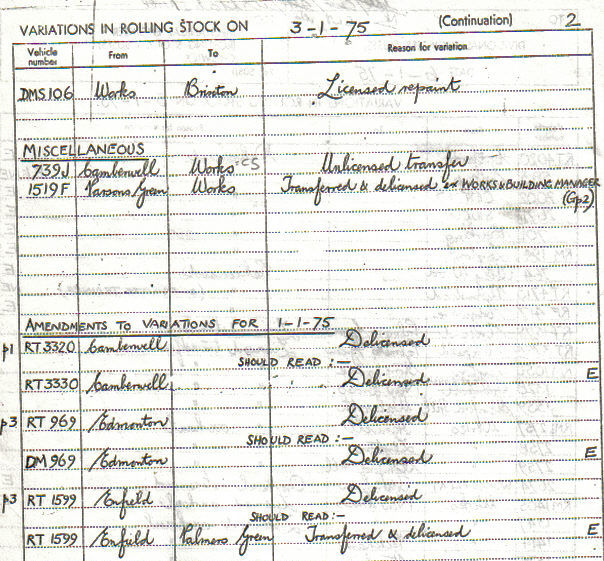 VARIATIONS IN ROLLING STOCK ON 3-1-75 (Continuation) 2
Vehicle number From To Reason for variation
DMS 106 Works Brixton Licensed repaint
MISCELLANEOUS
739J Camberwell Works-CS Unlicensed transfer
1519F Parsons Green Works Transferred & delicensed ex WORKS & BUILDING MANAGER
(Gp2)
AMENDMENTS TO VARIATIONS FOR 1-1-75
p1 RT3320 Camberwell Delicensed
SHOULD READ :-
RT3330 Camberwell Delicensed E
p3 RT 969 Edmonton Delicensed
SHOULD READ :-
DM 969 Edmonton Delicensed E
p3 RT 1599 Enfield Delicensed
SHOULD READ :-
RT 1599 Enfield Palmers Green Transferred & delicensed E